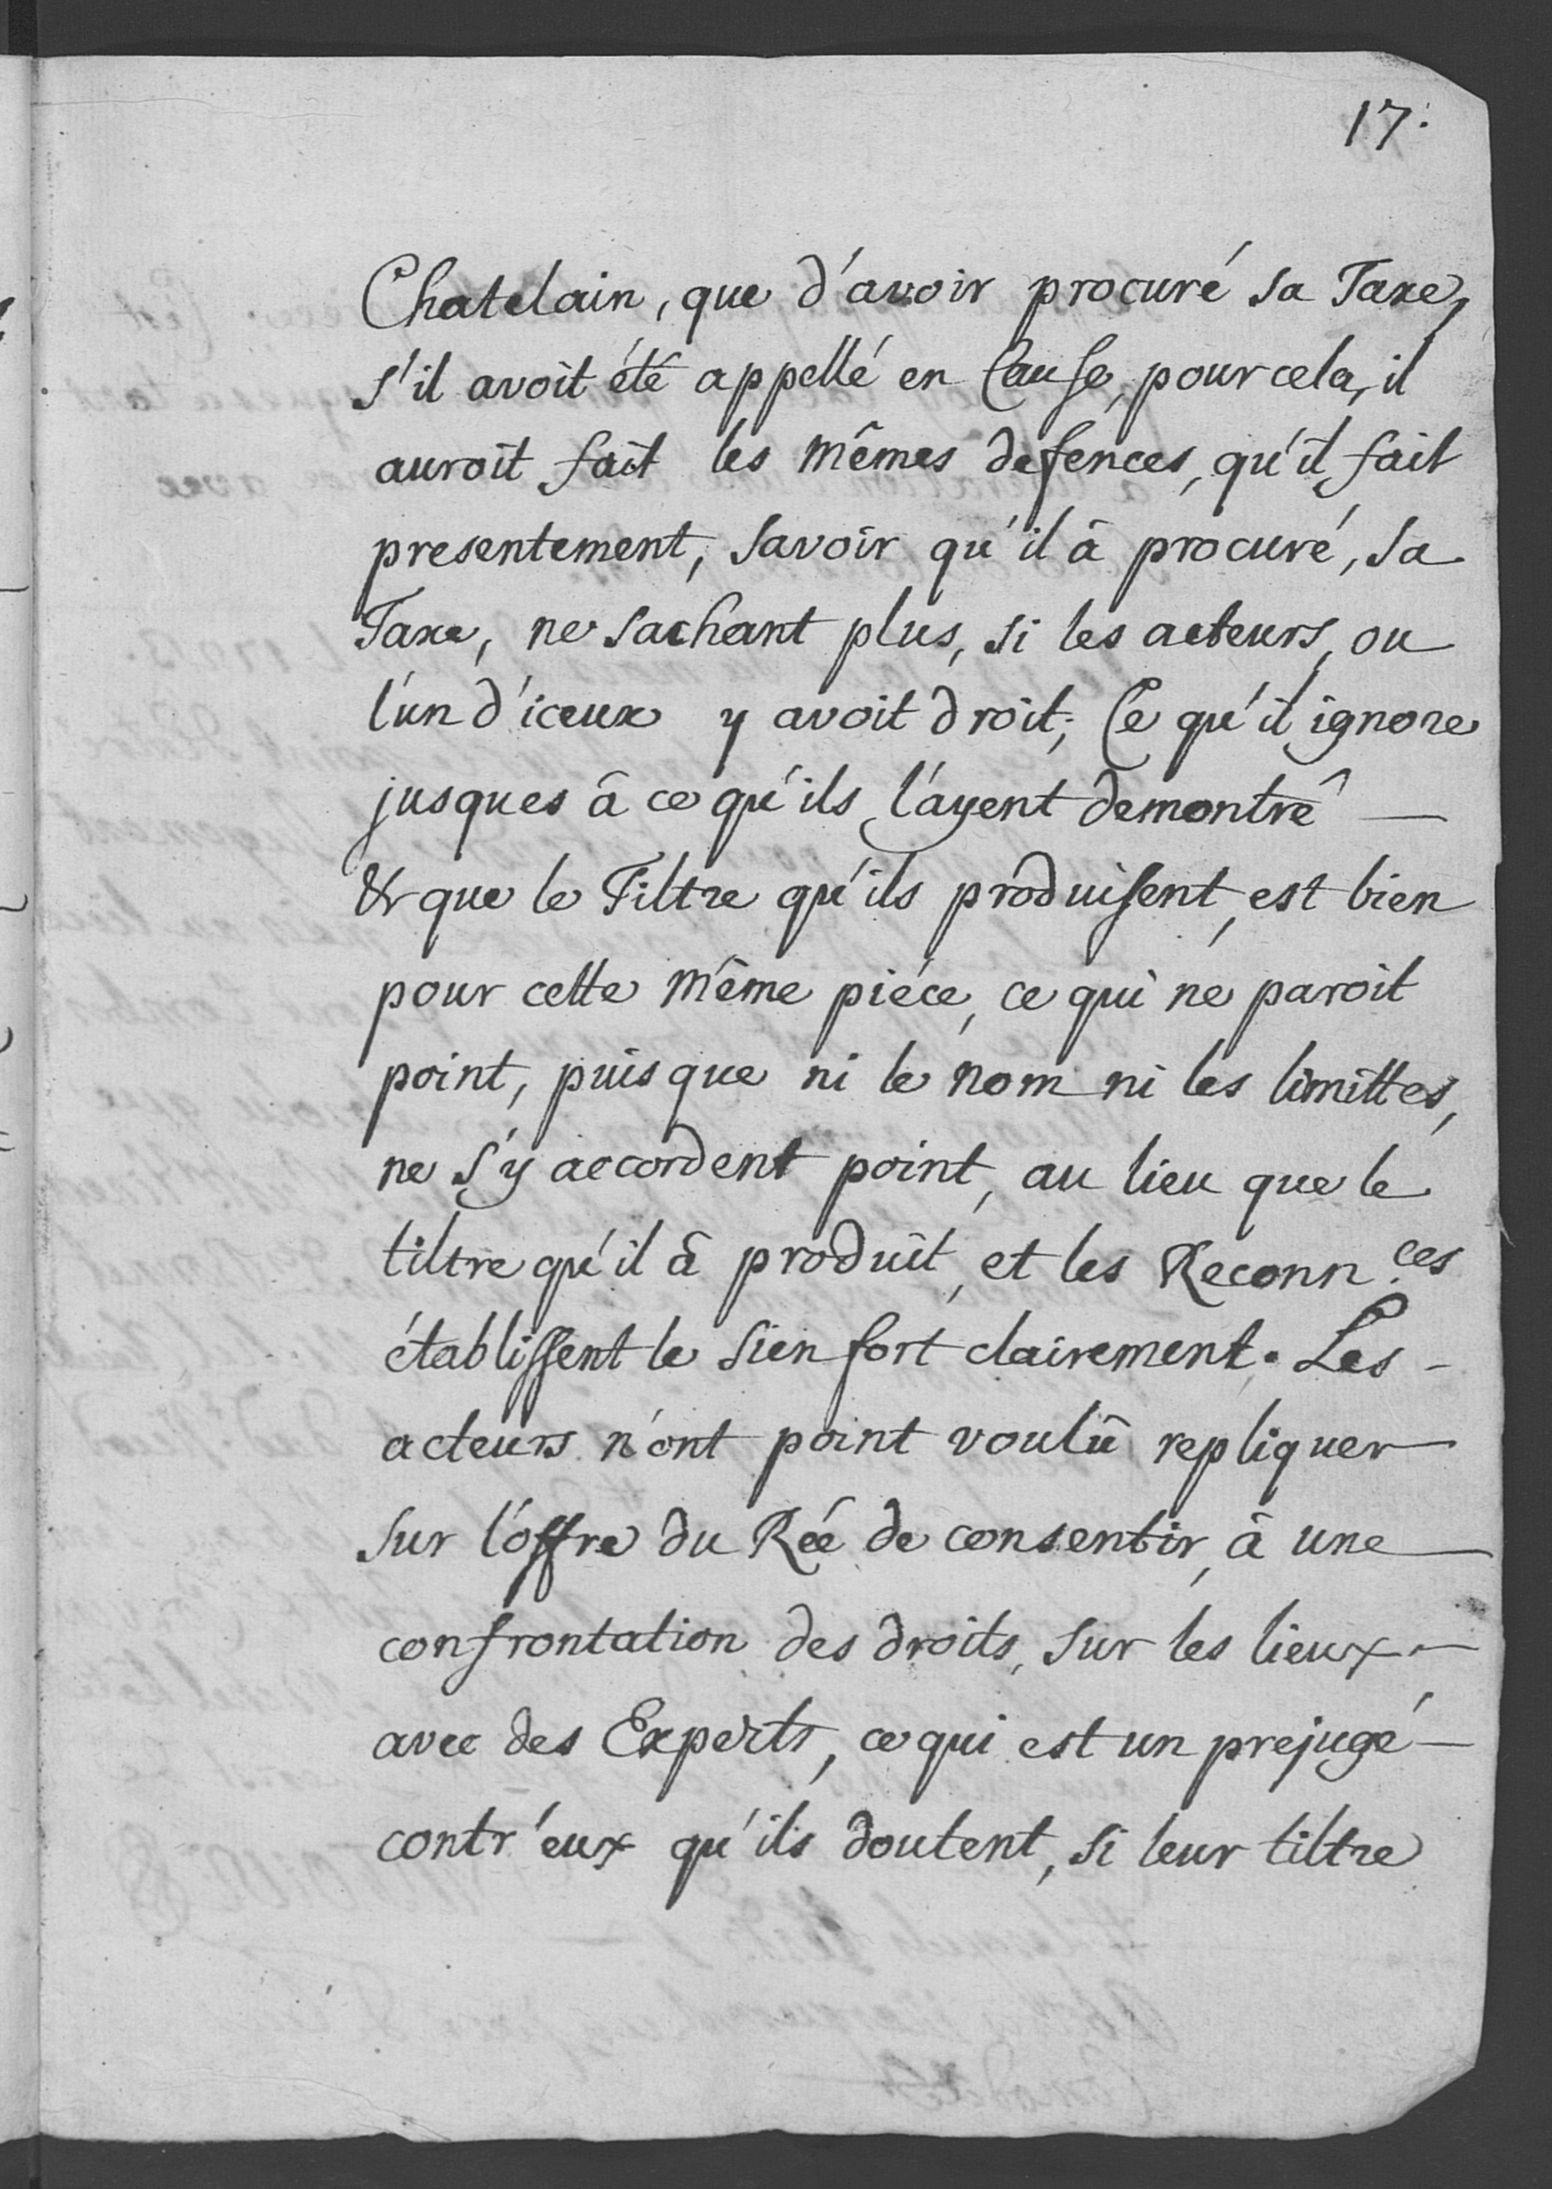 17.
Chatelain, que d'avoir procuré sa Taxe,
s'il avoit été appellé en Cause, pour cela, il
auroit fait les mêmes defences, qu'il fait
presentement, savoir qu'il â procuré, sa
Taxe, ne sachant plus, si les acteurs, ou
l'un d'iceux y avoit droit; Ce qu'il ignore
jusques â ce qu'ils l'ayent demontré —
& que le Tiltre qu'ils produisent, est bien
pour cette même piéce, ce qui ne paroit
point, puis que ni le nom ni les limittes,
ne s'y accordent point, au lieu que le
tiltre qu'il â produit, et les Reconn.ces
établissent le sien fort clairement. Les -
acteurs n'ont point voulû repliquer —
sur l'offre du Rée de consentir, â une —
confrontation des droits, sur les lieux —
avec des Experts, ce qui est un prejugé —
contr'eux qu'ils doutent, si leur tiltre